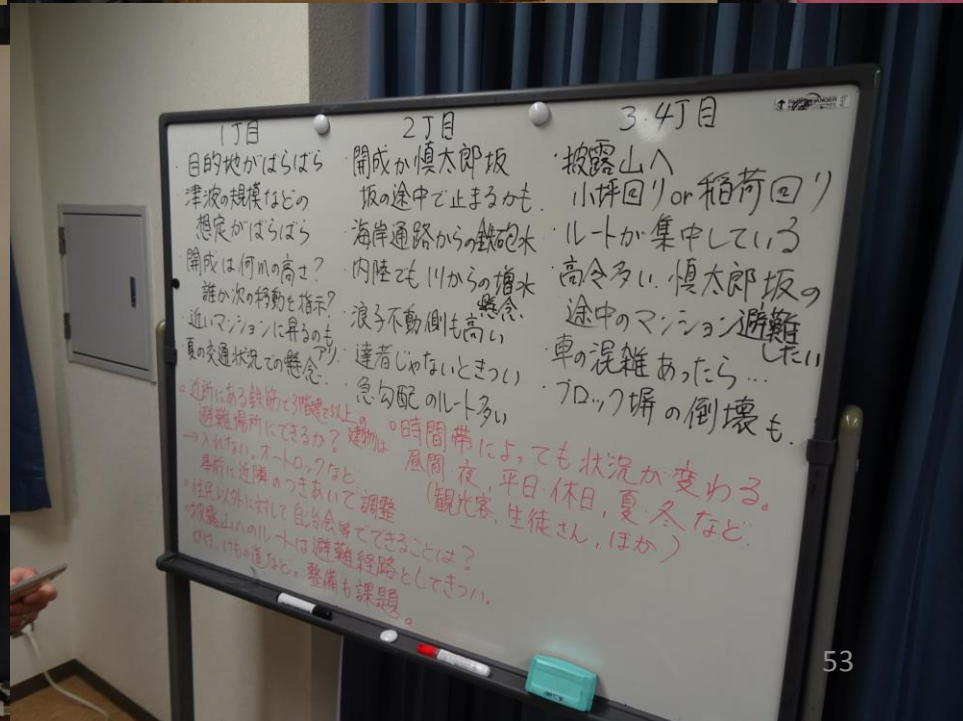 1丁目
・目的地がばらばら
・津波の規模などの
想定がばらばら
・開成は何mの高さ?
誰が次の移動を指示?
・近いマンションに昇るのも
アリ
夏の交通状況での懸念.
2丁目
・開成か慎太郎坂
坂の途中で止まるかも.
・海岸通路からの鉄砲水
・内陸でも川からの増水
懸念.
・浪子不動側も高い
・達者じゃないときつい
・急勾配のルート多い
3.4丁目
・披露山へ
小坪回りor稲荷回り
・ルートが集中している
・高令多い.慎太郎坂の
途中のマンション避難
したい
・車の混雑あったら…
・ブロック塀の倒壊も.
○近所にある鉄筋で3階建て以上の
建物は
避難場所にできるか?
→入れない。オートロックなど
事前に近隣のつきあいで調整
○住民以外に対して自治会等でできることは?
○披露山へのルートは避難経路としてきつい。
がけ、けもの道など。整備も課題。
○時間帯によっても状況が変わる。
昼間・夜、平日・休日、夏・冬など
(観光客、生徒さん、ほか)
53